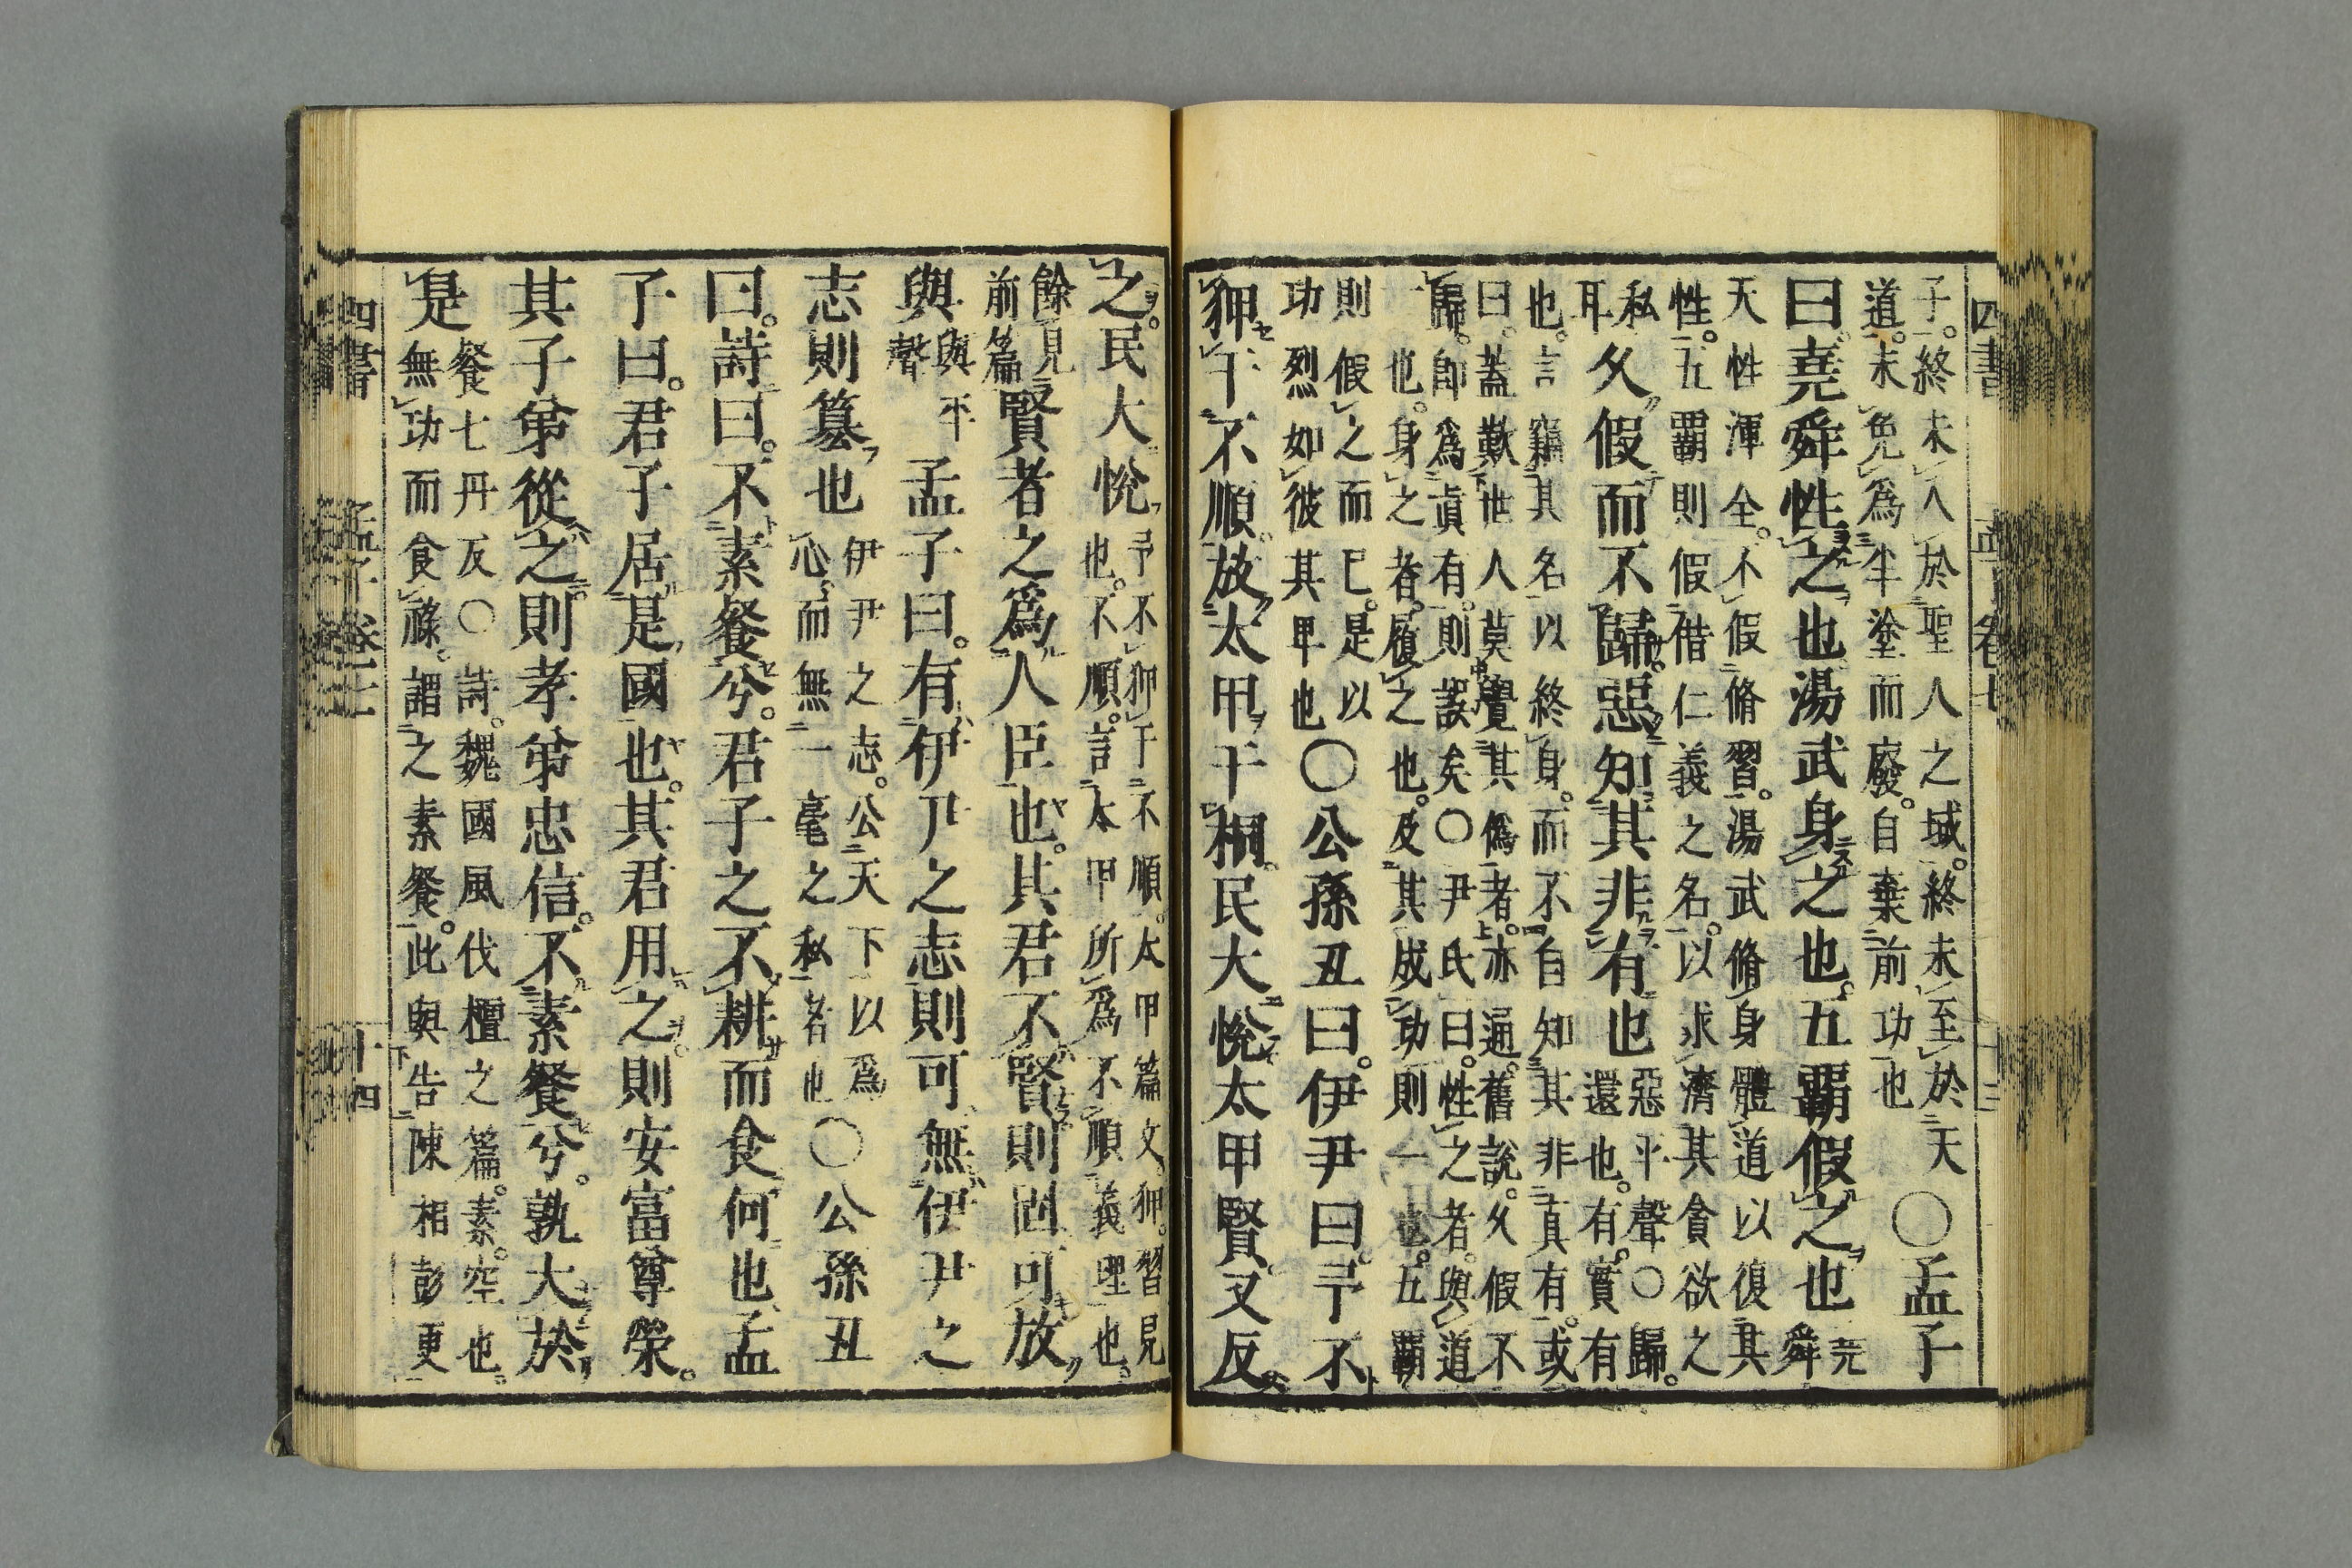 四書 孟子卷七
子。終未入於聖人之域。終未至於天
道。未免爲半塗而廢。自棄前功也
〇孟子
曰。堯舜性之也湯武身之也。五霸假之也
堯
舜
天性渾全。不假脩習。湯武脩身體道以復其
性。五霸則假借仁義之名。以求濟其貪欲之
私
耳
久假而不歸。惡知其非有也
惡平聲〇歸。
還也。有。實有
也。言竊其名以終身。而不自知其非真有。或
曰。蓋歎世人莫覺其僞者。亦通。舊說。久假不
歸。卽爲眞有。則誤矣〇尹氏曰。性之者。與道
一也。身之者。履之也。及其成功則一也。五霸
則假之而已。是以
功烈如彼其卑也
〇公孫丑曰。伊尹曰。予不
狎于不順。放太甲于桐。民大悅太甲賢。又反
之。民大悅
予不狎于不順。太甲篇文。狎。習見
也。不順。言太甲所爲不順義理也。
餘見
前篇
賢者之爲人臣也。其君不賢則固可放
與
與平
聲
孟子曰。有伊尹之志則可無伊尹之
志則簒也
伊尹之志。公天下以爲
心。而無一毫之私者也
〇公孫丑
曰。詩曰。不素餐兮。君子之不耕而食何也孟
子曰。君子居是國也。其君用之。則安富尊榮。
其子弟從之。則孝弟忠信。不素餐兮。孰大於
是
餐七丹反〇詩。魏國風伐檀之篇。素。空也。
無功而食祿。謂之素餐。此與告陳相彭更
四書 孟子卷七 十四